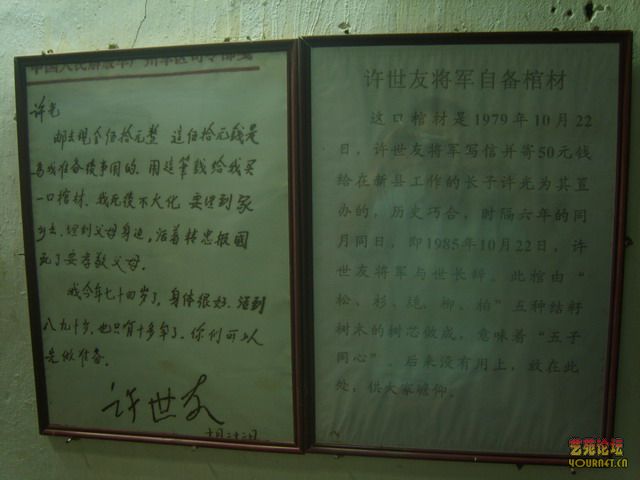 中国人民解放军广州军区司令部笺
许光
邮去现金伍拾元整 这伍拾元钱是
为我准备後事用的.用这笔钱给我买
一口棺材.我死後不火化 要埋到家
乡去.埋到父母身边,活着忠报國
死了要孝敬父母.
我今年七十四岁了,身体很好.活到
八九十岁,也只有十多年了.你们可以
先做准备.
许世友
十月二十二日
许世友将军自备棺材
这口棺材是1979年10月22
日，许世友将军写信并寄50元钱
给在新县工作的长子许光为其置
办的，历史巧合，时隔六年的同
月同日，即1985年10月22日，许
世友将军与世长辞。此棺由“
松、杉、、柳、柏”五种结籽
树木的树芯做成，意味着“五子
同心”。后来没有用上，放在此
处，供大家瞻仰。
艺苑论坛
YOURNET.CN